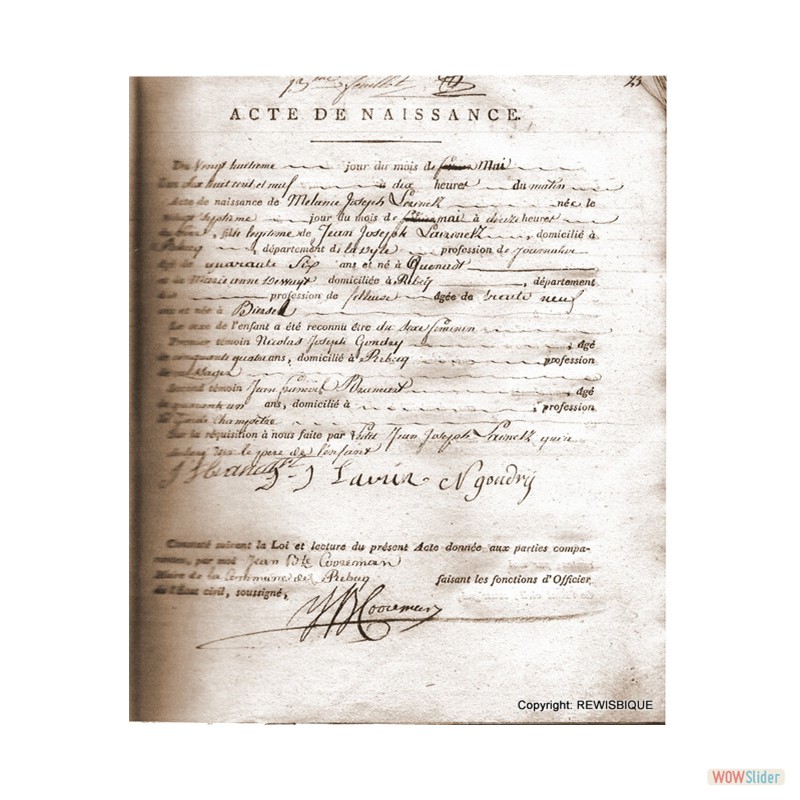 23
ACTE DE NAISSANCE.
Du Vingt huitieme jour du mois de Mai
L'an dix huit cent et neuf à dix heures du matin
Acte de naissance de Melanie Joseph née le
vingt septieme jour du mois de mai à heures
fille legitime de Jean Joseph domicilié à
Rebecq, département de la Dyle profession de Journalier
âgé de quarante Six ans et né à Quenast
et de Marie anne domiciliée à Rebcq, département
profession de fileuse âgée de trente neuf
ans et née à
Le sexe de l'enfant a été reconnu être du Sexe féminin
Premier témoin Nicolas Joseph Gondry, âgé
de cinquante quatre ans, domicilié à Rebecq profession
Second témoin Jean françois, âgé
de quarante un ans, domicilié à, profession
de Garde champetre
Sur la réquisition à nous faite par Jean Joseph
le pere de l'enfant
N goudry
Constaté suivant la Loi et lecture du présent Acte donnée aux parties compa-
rantes, par moi Jean Bte Cooreman
Maire de la Commune de Rebecq faisant les fonctions d'Officier
de l'État civil, soussigné,
Cooreman
Copyright: REWISBIQUE
WOWSlider